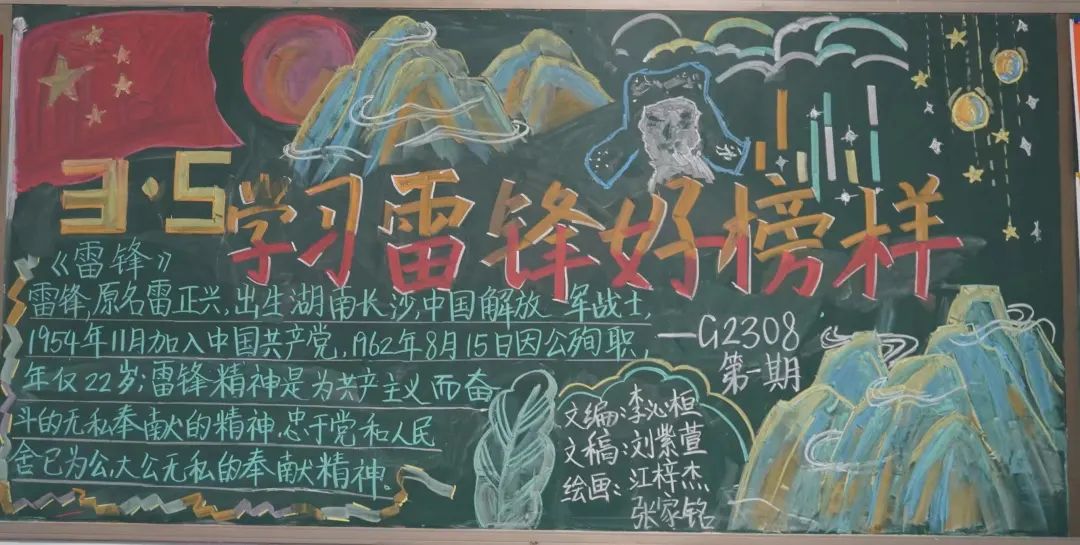 3·5学习雷锋好榜样
《雷锋》
雷锋,原名雷正兴,出生湖南长沙,中国解放军战士,
1954年11月加入中国共产党,1962年8月15日因公殉职,
年仅22岁;雷锋精神是为共产主义而奋
斗的无私奉献的精神.忠于党和人民
舍已为公,大公无私的奉献精神。
—G2308
第一期
文编:李沁桓
文稿:刘紫萱
绘画:江梓杰
张家铭